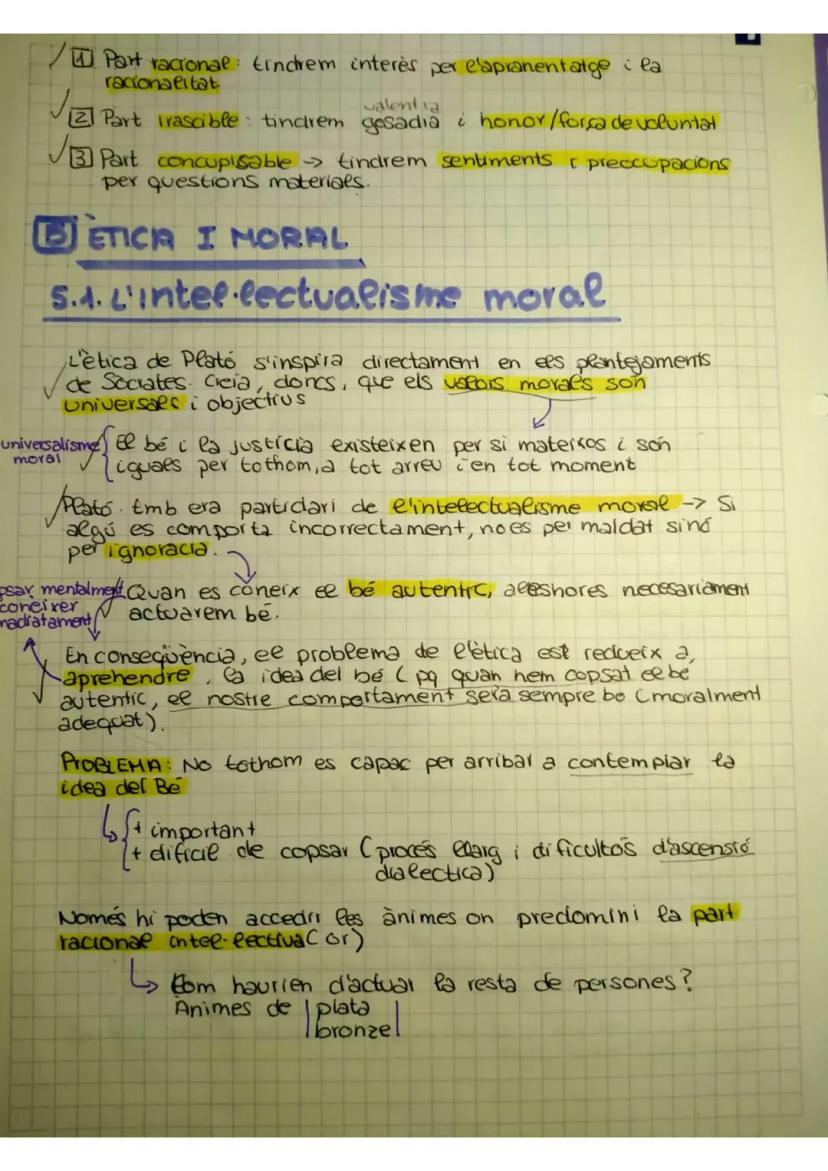 1 Part racional: tindrem interès per l'apranentatge i la
racionalitat.
valentia
2 Part irascible: tindrem gosadia i honor/força de voluntat
3 Part concupisable → tindrem sentiments i preocupacions
per questions materials.
5 ÈTICA I MORAL
5.1. L'intel·lectualisme moral
L'ètica de Plató s'inspira directament en els plantejaments
de Sòcrates. Creia, doncs, que els valors morals són
universals i objectius
universalisme
moral
El bé i la justícia existeixen per si mateixos i són
iguals per tothom, a tot arreu i en tot moment
Plató tmb era partidari de l'intelectualisme moral → Si
algú es comporta incorrectament, no es per maldat sinó
per ignoracia.
psar mentalment
coneixer
madiatament
Quan es coneix el bé autentic, aleshores necesariament
actuarem bé.
En conseqüència, el problema de l'ètica est redueix a
aprehendre, la idea del bé (pq quan hem copsat el bé
autentic, el nostre comportament serà sempre bo (moralment
adequat).
PROBLEMA: No tothom es capac per arribar a contemplar la
idea del Bé
+ important
+ dificil de copsar (procés llarg i dificultós d'ascensió
dialectica)
Només hi poden accedir les ànimes on predomini la part
racional intel·lectiva (or)
Com haurien d'actuar la resta de persones?
Animes de plata
bronze